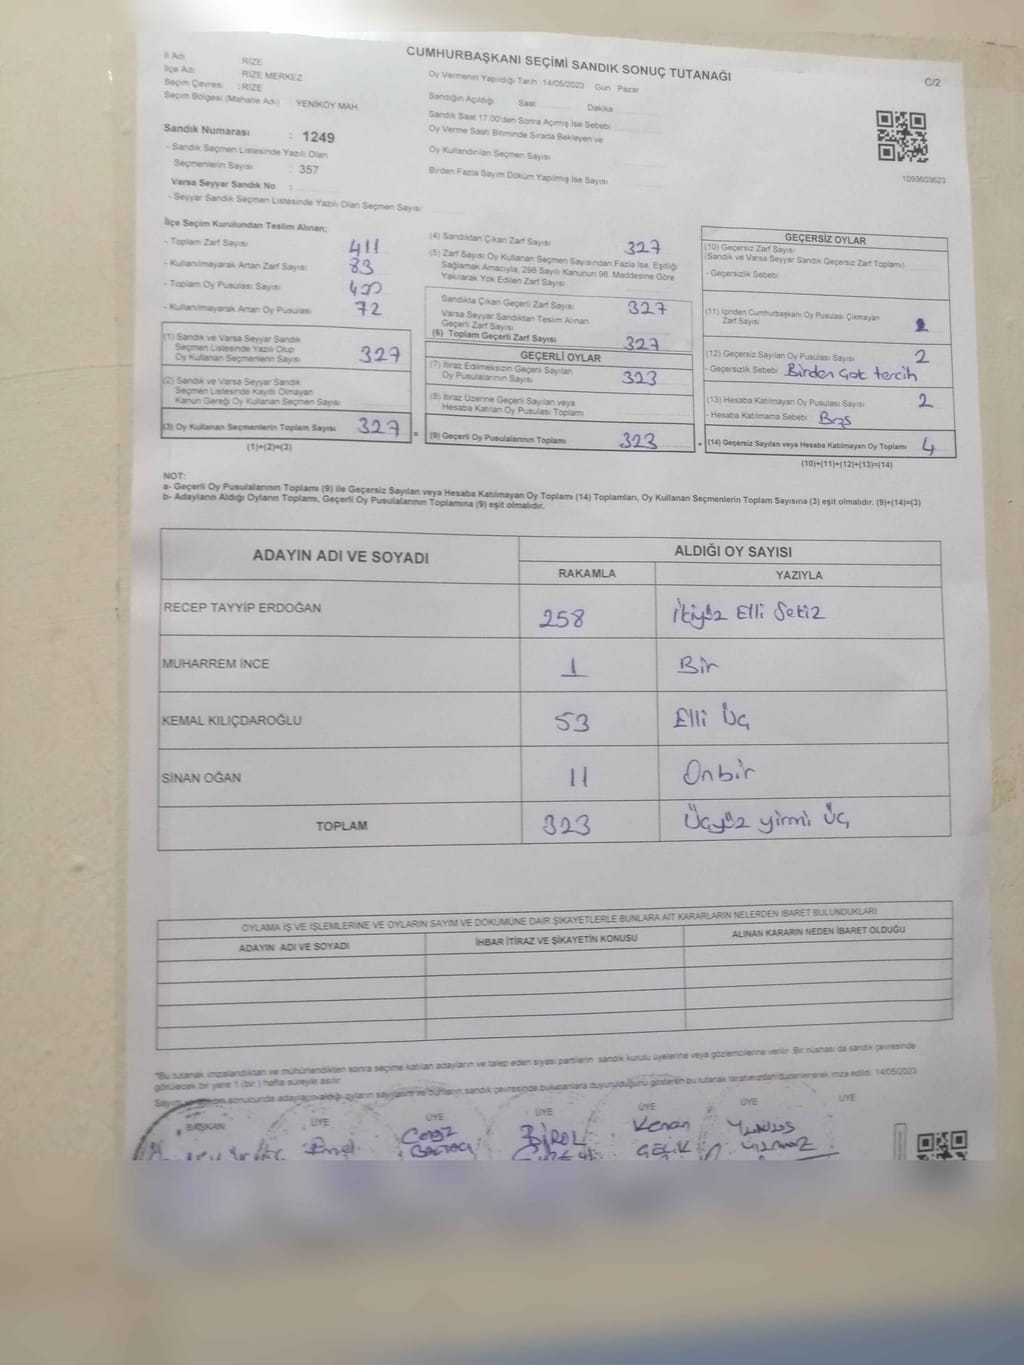 CUMHURBAŞKANI SEÇİMİ SANDIK SONUÇ TUTANAĞI
C/2
İl Adı RİZE
İlçe Adı RİZE MERKEZ
Seçim Çevresi : RİZE
Seçim Bölgesi (Mahalle Adı) YENİKÖY MAH.
Sandık Numarası : 1249
- Sandık Seçmen Listesinde Yazılı Olan
Seçmenlerin Sayısı : 357
Varsa Seyyar Sandık No :
- Seyyar Sandık Seçmen Listesinde Yazılı Olan Seçmen Sayısı
Oy Vermenin Yapıldığı Tarih :14/05/2023 Gün Pazar
Sandığın Açıldığı Saat Dakika
Sandık Saat 17:00'den Sonra Açılmış İse Sebebi
Oy Verme Saati Bitiminde Sırada Bekleyen ve
Oy Kullandırılan Seçmen Sayısı
Birden Fazla Sayım Döküm Yapılmış İse Sayısı
1093603623
İlçe Seçim Kurulundan Teslim Alınan;
- Toplam Zarf Sayısı 411
- Kullanılmayarak Artan Zarf Sayısı 83
- Toplam Oy Pusulası Sayısı
- Kullanılmayarak Artan Oy Pusulası 72
(1) Sandık ve Varsa Seyyar Sandık
Seçmen Listesinde Yazılı Olup
Oy Kullanan Seçmenlerin Sayısı 327
(2) Sandık ve Varsa Seyyar Sandık
Seçmen Listesinde Kayıtlı Olmayan
Kanun Gereği Oy Kullanan Seçmen Sayısı
(3) Oy Kullanan Seçmenlerin Toplam Sayısı 327
(1)+(2)=(3)
(4) Sandıktan Çıkan Zarf Sayısı 327
(5) Zarf Sayısı Oy Kullanan Seçmen Sayısından Fazla İse, Eşitliği
Sağlamak Amacıyla, 298 Sayılı Kanunun 98. Maddesine Göre
Yakılarak Yok Edilen Zarf Sayısı
Sandıkta Çıkan Geçerli Zarf Sayısı 327
Varsa Seyyar Sandıktan Teslim Alınan
Geçerli Zarf Sayısı
(6) Toplam Geçerli Zarf Sayısı 327
GEÇERLİ OYLAR
(7) İtiraz Edilmeksizin Geçerli Sayılan
Oy Pusulalarının Sayısı 323
(8) İtiraz Üzerine Geçerli Sayılan veya
Hesaba Katılan Oy Pusulası Toplamı
= (9) Geçerli Oy Pusulalarının Toplamı 323
GEÇERSİZ OYLAR
(10) Geçersiz Zarf Sayısı
(Sandık ve Varsa Seyyar Sandık Geçersiz Zarf Toplamı)
- Geçersizlik Sebebi
(11) İçinden Cumhurbaşkanı Oy Pusulası Çıkmayan
Zarf Sayısı
(12) Geçersiz Sayılan Oy Pusulası Sayısı 2
- Geçersizlik Sebebi Birden çok tercih
(13) Hesaba Katılmayan Oy Pusulası Sayısı 2
- Hesaba Katılmama Sebebi Boş
+ (14) Geçersiz Sayılan veya Hesaba Katılmayan Oy Toplamı 4
(10)+(11)+(12)+(13)=(14)
NOT:
a- Geçerli Oy Pusulalarının Toplamı (9) ile Geçersiz Sayılan veya Hesaba Katılmayan Oy Toplamı (14) Toplamları, Oy Kullanan Seçmenlerin Toplam Sayısına (3) eşit olmalıdır. (9)+(14)=(3)
b- Adayların Aldığı Oyların Toplamı, Geçerli Oy Pusulalarının Toplamına (9) eşit olmalıdır.
ADAYIN ADI VE SOYADI ALDIĞI OY SAYISI
RAKAMLA YAZIYLA
RECEP TAYYİP ERDOĞAN 258 İkiyüz Elli Sekiz
MUHARREM İNCE 1 Bir
KEMAL KILIÇDAROĞLU 53 Elli Üç
SİNAN OĞAN 11 Onbir
TOPLAM 323 Üçyüz yirmi Üç
OYLAMA İŞ VE İŞLEMLERİNE VE OYLARIN SAYIM VE DÖKÜMÜNE DAİR ŞİKAYETLERLE BUNLARA AİT KARARLARIN NELERDEN İBARET BULUNDUKLARI
ADAYIN ADI VE SOYADI İHBAR İTİRAZ VE ŞİKAYETİN KONUSU ALINAN KARARIN NEDEN İBARET OLDUĞU
"Bu tutanak imzalandıktan ve mühürlendikten sonra seçime katılan adayların ve talep eden siyasi partilerin sandık kurulu üyelerine veya gözlemcilerine verilir. Bir nüshası da sandık çevresinde
görülecek bir yere 1 (bir) hafta süreyle asılır.
Sayım ve döküm sonucunda adayların aldığı oyların sayılarını ve bunların sandık çevresinde bulunanlara duyurulduğunu gösteren bu tutanak tarafımızdan düzenlenerek imza edildi. 14/05/2023
BAŞKAN ÜYE ÜYE ÜYE ÜYE ÜYE ÜYE
BİROL Kenan YUNUS
ÇELİK YILMAZ